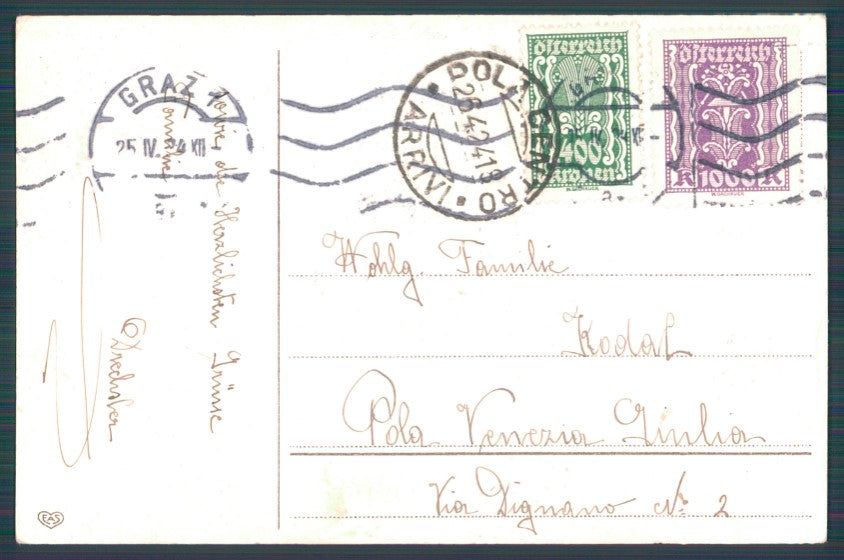 GRAZ 1
25 IV. 24 XII
POLA CENTRO
26.4.24 19
ARRIVI
österreich
kronen
österreich
K 1000 K
sowie die Herzlichsten Grüsse
Familie
Drechsler
Wohlg. Familie
Kodal
Pola Venezia Giulia
Via Dignano No. 2
EAS